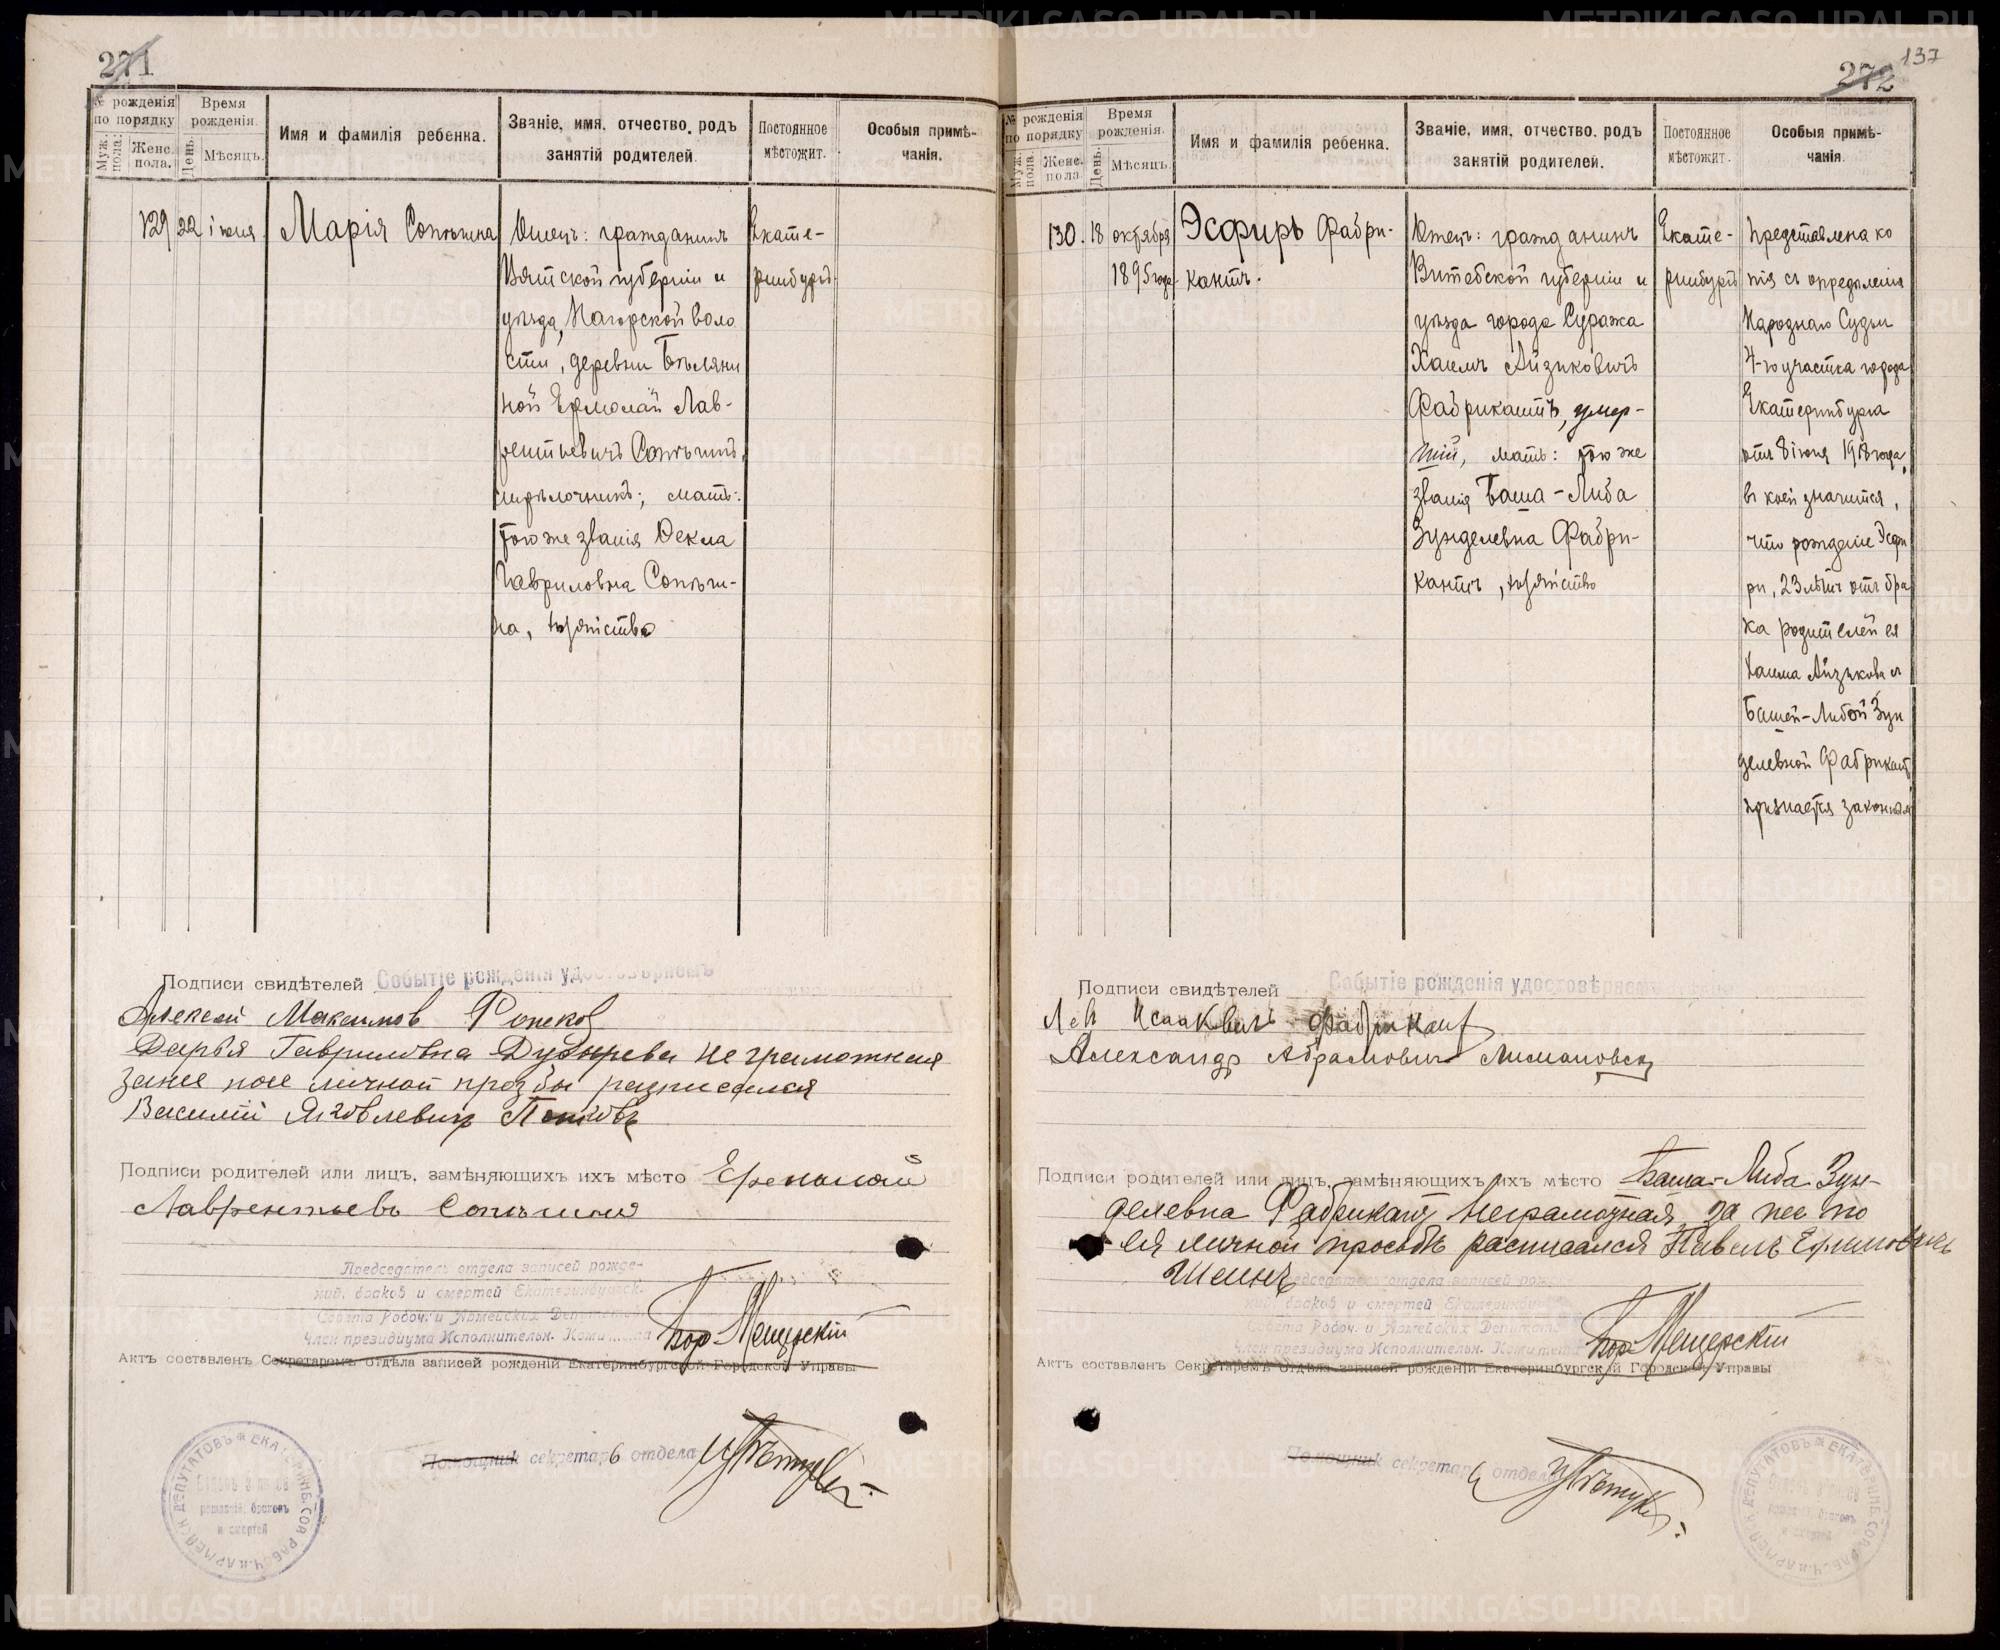 271
№ рожденія по порядку
Муж. пола.
Женс. пола.
Время рожденія.
День.
Мѣсяцъ.
Имя и фамилія ребенка.
Званіе, имя, отчество, родъ
занятій родителей.
Постоянное
мѣстожит.
Особыя примѣ-
чанія.
129 22 іюня Марія
Отецъ: гражданинъ
Вятской губерніи и
уѣзда, Нагорской воло
сти, деревни Бѣляни
ной Ермолай Лав-
рентьевичъ
стрѣлочникъ; мать:
того же званія Фекла
Гавриловна
на, хозяйство
Екате-
ринбургъ
Подписи свидѣтелей Событіе рожденія удостовѣряемъ
Алексей Максимов
Дарья Гавриловна неграмотная
занее пое личной прозбы разписался
Василій Яковлевичъ
Подписи родителей или лицъ, замѣняющихъ ихъ мѣсто Ермолай
Лаврентьевъ
Предсѣдатель отдела записей рожде-
ний, браков и смертей Екатеринбургск.
Совѣта Рабоч. и Армейских Депутатов
Член президиума Исполнительн. Комитета
Актъ составленъ Секретаремъ отдѣла записей рожденій Екатеринбургской Городской Управы
Помощник секретарь отдела
272
137
№ рожденія по порядку
Муж. пола.
Женс. пола.
Время рожденія.
День.
Мѣсяцъ.
Имя и фамилія ребенка.
Званіе, имя, отчество, родъ
занятій родителей.
Постоянное
мѣстожит.
Особыя примѣ-
чанія.
130. 18 октября
1895 года
Эсфирь Фабри-
кантъ.
Отецъ: гражданинъ
Витебской губерніи и
уѣзда города Суража
Хаимъ Айзиковичъ
Фабрикантъ, умер-
шій, мать: того же
званія Баша-Либа
Зунделевна Фабри-
кантъ, хозяйство
Екате-
ринбургъ
Представлена ко
пія съ опредѣленія
Народнаго Судьи
4-го участка города
Екатеринбурга
отъ 8 іюня 1918 года,
въ коей значится,
что рожденіе Эсфи
ри, 23 лѣтъ отъ бра
ка родителей ея
Хаима Айзикова и
Башей-Либой Зун
делевной Фабрикантъ
признается законнымъ
Подписи свидѣтелей Событіе рожденія удостовѣряемъ
Лев Фабрикант
Александр Абрамович
Подписи родителей или лицъ, замѣняющихъ ихъ мѣсто Баша-Либа Зун-
делевна Фабрикантъ неграмотная, за нее по
ея личной просьбѣ расписался Павелъ
Шеинъ
Предсѣдатель отдела записей рожде-
ний, браков и смертей Екатеринбургск.
Совѣта Рабоч. и Армейских Депутатов
Член президиума Исполнительн. Комитета
Мещерскій
Актъ составленъ Секретаремъ отдѣла записей рожденій Екатеринбургской Городской Управы
Помощник секретарь отдела
METRIKI.GASO-URAL.RU